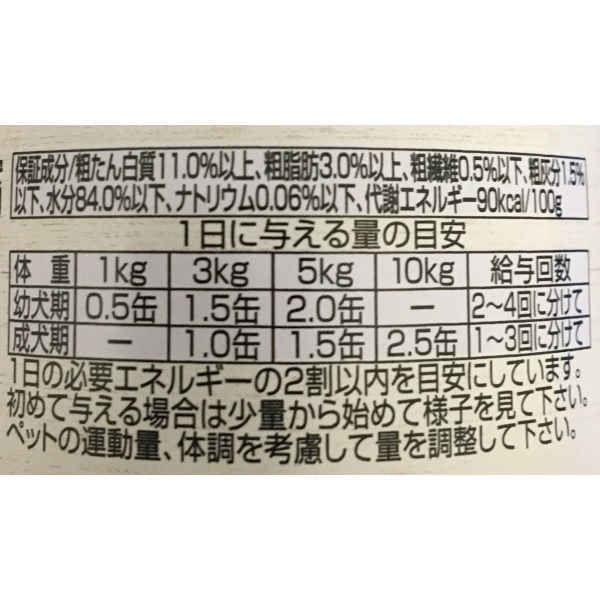 保証成分/粗たん白質11.0%以上、粗脂肪3.0%以上、粗繊維0.5%以下、粗灰分1.5%
以下、水分84.0%以下、ナトリウム0.06%以下、代謝エネルギー90kcal/100g
1日に与える量の目安
体 重 1kg 3kg 5kg 10kg 給与回数
幼犬期 0.5缶 1.5缶 2.0缶 — 2〜4回に分けて
成犬期 — 1.0缶 1.5缶 2.5缶 1〜3回に分けて
1日の必要エネルギーの2割以内を目安にしています。
初めて与える場合は少量から始めて様子を見て下さい。
ペットの運動量、体調を考慮して量を調整して下さい。